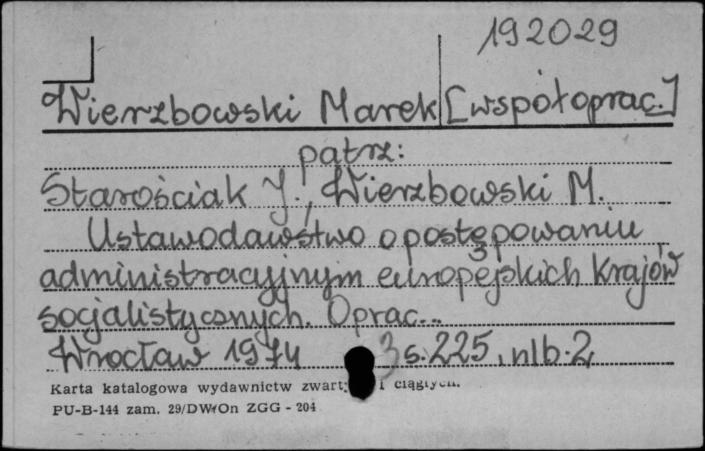 192029
Wierzbowski Marek [współoprac.]
patrz:
Starościak J., Wierzbowski M.
Ustawodawstwo o postępowaniu
administracyjnym europejskich krajów
socjalistycznych. Oprac...
Wrocław 1974 s. 225, nlb. 2
Karta katalogowa wydawnictw zwartych i ciągłych.
PU-B-144 zam. 29/DW/On ZGG - 204